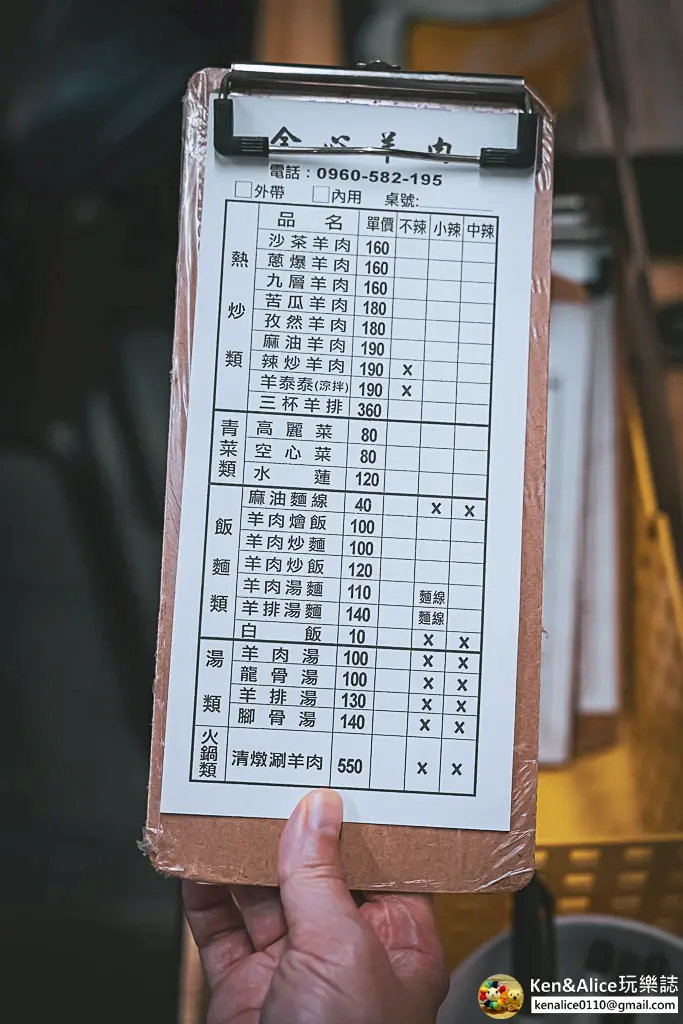 全心羊肉
電話：0960-582-195
□外帶 □內用 桌號:
品名 單價 不辣 小辣 中辣
熱炒類
沙茶羊肉 160
蔥爆羊肉 160
九層羊肉 160
苦瓜羊肉 180
孜然羊肉 180
麻油羊肉 190
辣炒羊肉 190 x
羊泰泰(涼拌) 190 x
三杯羊排 360
青菜類
高麗菜 80
空心菜 80
水蓮 120
飯麵類
麻油麵線 40 x x
羊肉燴飯 100
羊肉炒麵 100
羊肉炒飯 120
羊肉湯麵 110 麵線
羊排湯麵 140 麵線
白飯 10 x x
湯類
羊肉湯 100 x x
龍骨湯 100 x x
羊排湯 130 x x
腳骨湯 140 x x
火鍋類
清燉涮羊肉 550 x x
Ken&Alice玩樂誌
kenalice0110@gmail.com